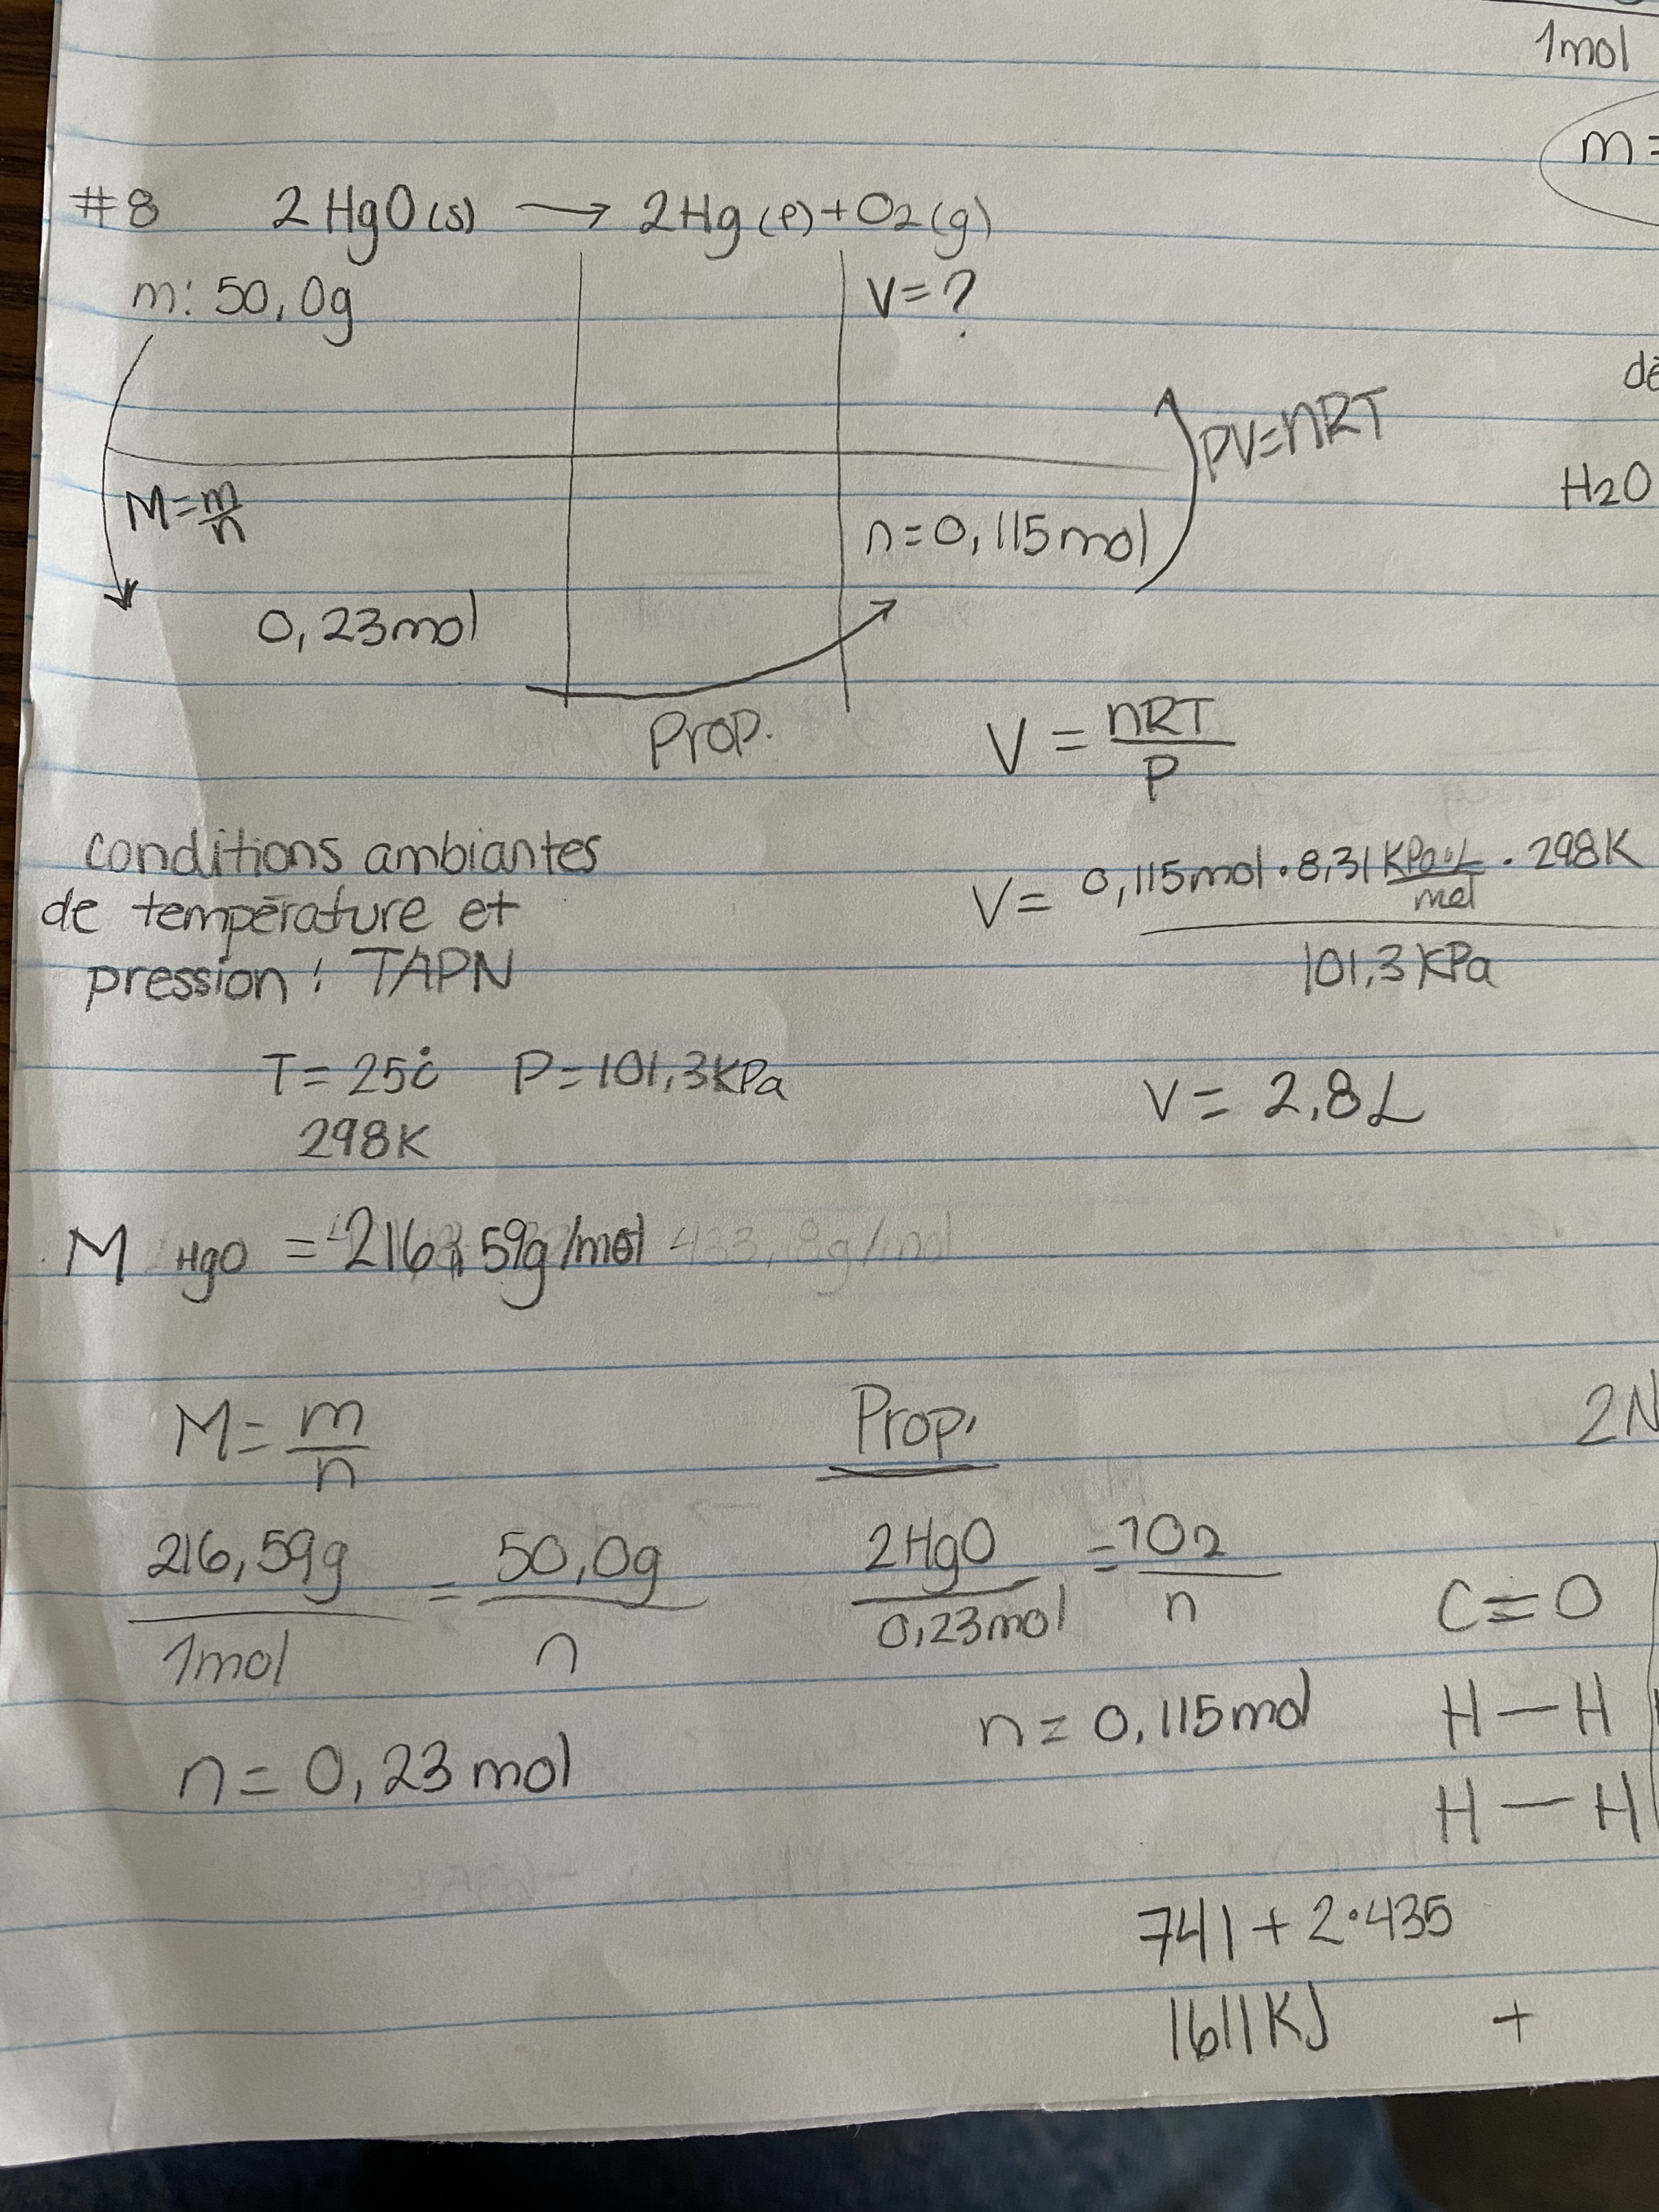 1mol
m=
#8 2HgO(s) → 2Hg(l)+O2(g)
m: 50,0g V=?
de
PV=nRT
H2O
M=m/n
n=0,115mol
0,23mol
Prop.
V = nRT/P
conditions ambiantes
de température et
pression : TAPN
V= 0,115mol•8,31 KPa•L/mol . 298K
101,3KPa
T= 25°C P=101,3KPa
298K
V= 2,8L
M HgO = 216,59g/mol 433,18g/mol
M= m/n
Prop.
2N
216,59g/1mol = 50,0g/n
2HgO/0,23mol = 1O2/n
C=O
n= 0,115mol
H—H
n= 0,23mol
H—H
741+2•435
1611KJ +